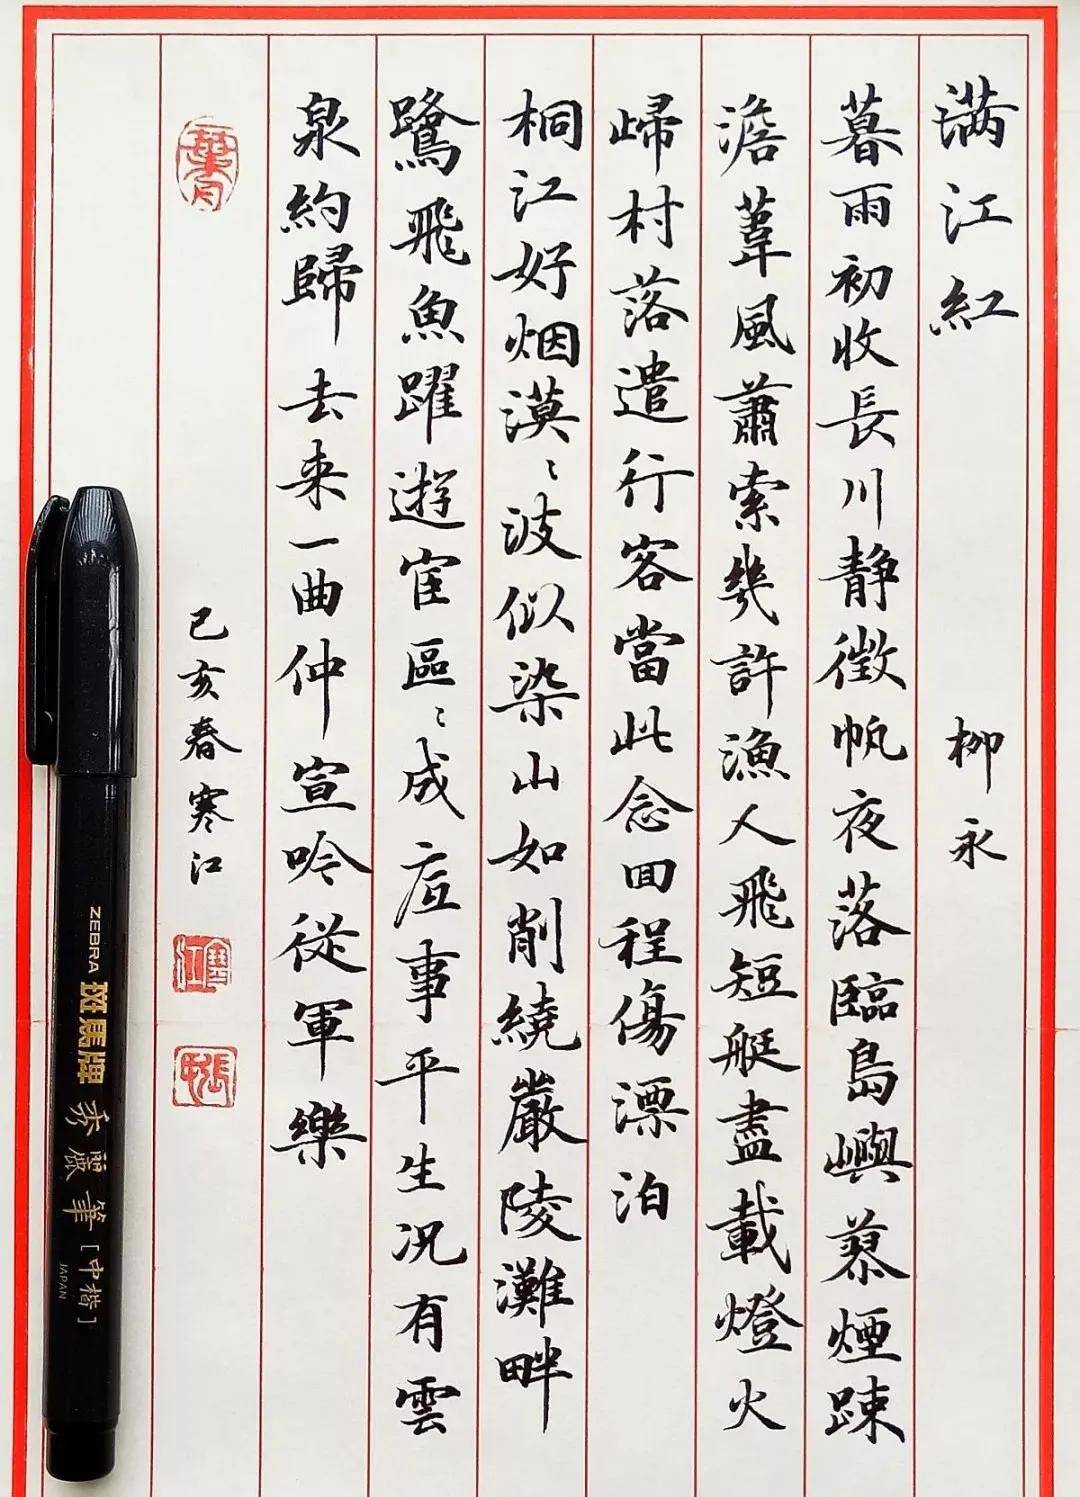 满江紅 柳永
暮雨初收長川静徵帆夜落臨島嶼蓼煙疎
澹葦風蕭索幾許漁人飛短艇盡載燈火
歸村落遣行客當此念回程傷漂泊
桐江好烟漠〻波似染山如削繞嚴陵灘畔
鷺飛魚躍遊宦區〻成底事平生况有雲
泉約歸去来一曲仲宣吟從軍樂
己亥春寒江
寒江
ZEBRA 斑馬牌 秀麗筆 [中楷]
JAPAN